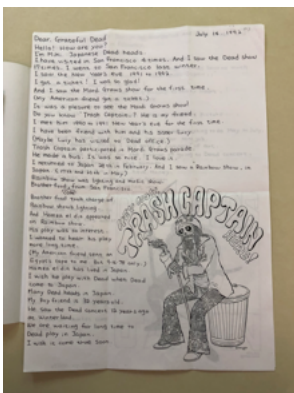 July 14, 1992
Dear, Greatful Dead
Hello! How are you?
I'm M.M. Japanese Dead heads.
I have visited in San Francisco 4 times. And I saw the Dead show
17 times. I went to San Francisco last winter.
I saw the New Year's Eve 1991 to 1992.
I got a ticket! I was so glad!
And I saw the Mardi Grass show for the first time.
(My American friend got a ticket.)
It was a pleasure to see the Mardi Grass show!
Do you know "Trash Captain"? He is my friend.
I met him 1990 to 1991 New Year's Eve for the first time.
I have been friend with him and his sister Lucy.
(Maybe Lucy has visited to Dead office.)
Trash Captain participated in Mardi Grass parade.
He made a bus. It was so nice. I love it.
I returned to Japan in February. And I saw a Rainbow show, in
Japan
Rainbow show was lighting and music show.
Brother Food from San Francisco
Brother Food took charge of
Rainbow show's lighting.
And Hamza el din appeared
at Rainbow show.
His play was so interest.
I wanted to hear his play
more long time.
(My American friend song an
Egypt's tape to me.
Hamza el din has lived in Japan.
I wish he play with Dead when Dead
come to Japan.
Many Dead heads in Japan.
My boy friend is 38 years old.
He saw the Dead concert 17 years ago
at Winterland.
We are waiting for long time to
Dead play in Japan.
I wish it come true soon.
TRASH CAPTAIN